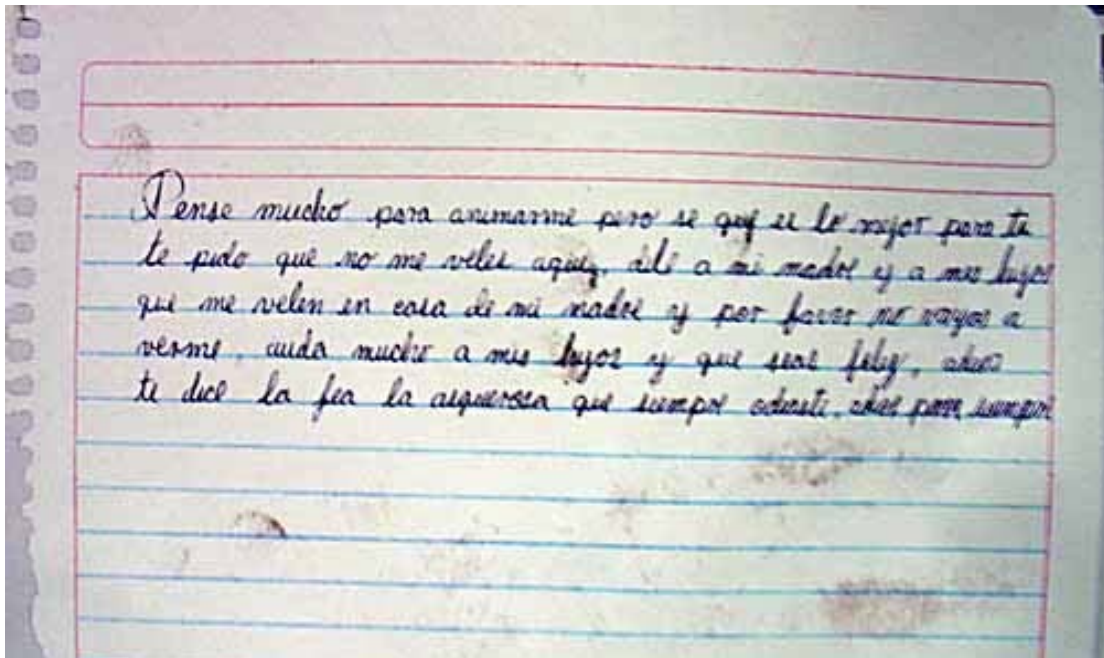 Pense mucho para animarme pero se que es lo mejor para ti
te pido que no me veles aqui, dile a mi madre y a mis hijos
que me velen en casa de mi madre y por favor no vayas a
verme, cuida mucho a mis hijos y que seas feliz, adios
te dice la fea la asquerosa que siempre odiaste, adios para siempre